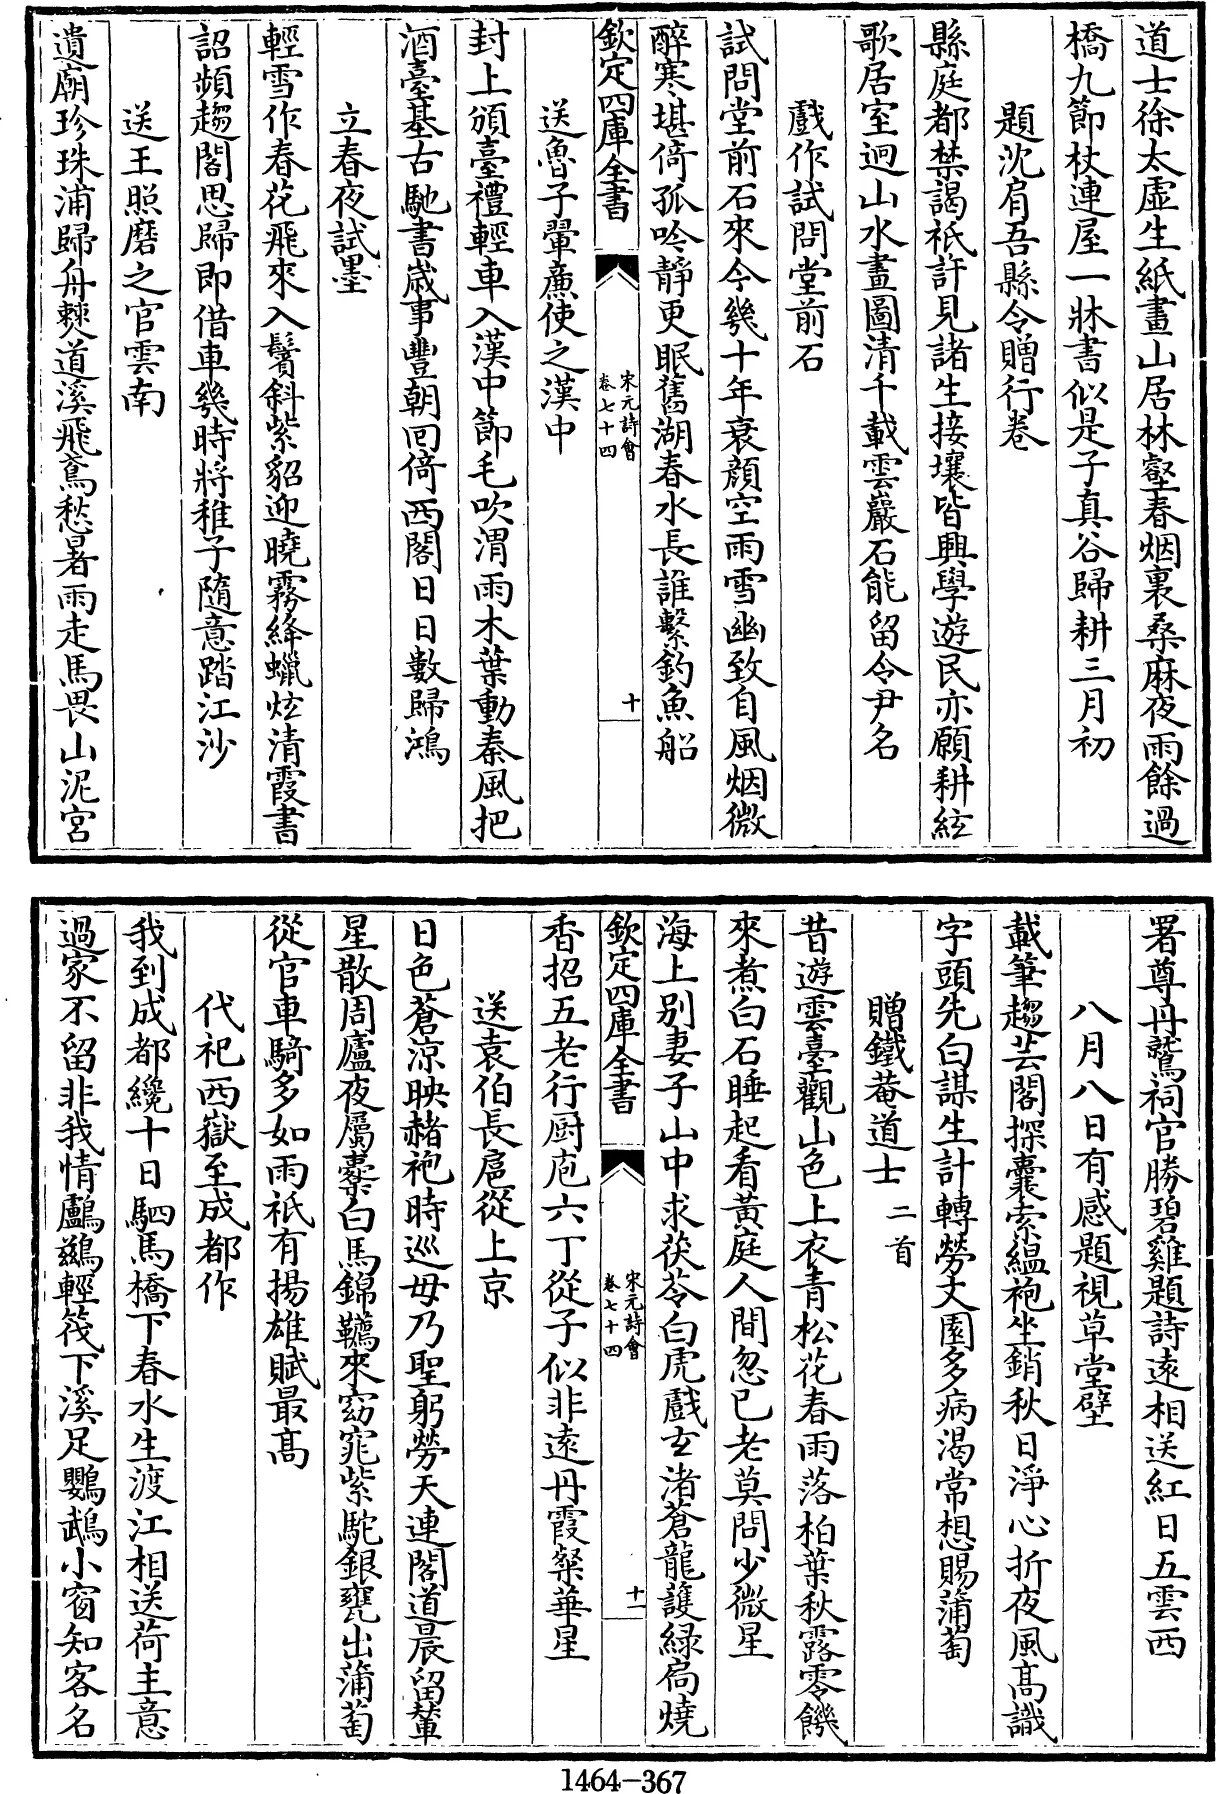 道士徐太虚生紙畫山居林壑春烟裏桑麻夜雨餘過
橋九節杖連屋一牀書似是子真谷歸耕三月初
題沈肩吾縣令贈行卷
縣庭都禁謁祇許見諸生接壤皆興學遊民亦願耕絃
歌居室迥山水畫圖清千載雲巖石能留令尹名
戲作試問堂前石
試問堂前石來今幾十年衰顔空雨雪幽致自風烟微
醉寒堪倚孤吟靜更眠舊湖春水長誰繫釣魚船
欽定四庫全書
宋元詩會
卷七十四
十
送魯子翬廉使之漢中
封上頒臺禮輕車入漢中節毛吹渭雨木葉動秦風把
酒臺基古馳書歲事豐朝回倚西閣日日數歸鴻
立春夜試墨
輕雪作春花飛來入鬢斜紫貂迎曉霧絳蠟炫清霞書
詔頻趨閣思歸即借車幾時將稚子隨意踏江沙
送王照磨之官雲南
遺廟珍珠浦歸舟棘人道溪飛鳶愁暑雨走馬畏山泥宮
署尊丹鷲祠官勝碧雞題詩遠相送紅日五雲西
八月八日有感題視草堂壁
載筆趨芸閣探囊索緼袍坐銷秋日淨心折夜風髙識
字頭先白謀生計轉勞文園多病渴常想賜蒲萄
贈鐵菴道士 二首
昔遊雲臺觀山色上衣青松花春雨落柏葉秋露零饑
來煮白石睡起看黃庭人間忽已老莫問少微星
海上別妻子山中求茯苓白虎戲玄渚蒼龍護緑扃燒
欽定四庫全書
宋元詩會
卷七十四
十一
香招五老行厨庖六丁從子似非遠丹霞粲華星
送袁伯長扈從上京
日色蒼涼映赭袍時巡毋乃聖躬勞天連閣道晨留輦
星散周廬夜屬櫜白馬錦韉來窈窕紫駝銀甕出蒲萄
從官車騎多如雨祇有揚雄賦最髙
代祀西嶽至成都作
我到成都纔十日駟馬橋下春水生渡江相送荷主意
過家不留非我情鸕鷀輕筏下溪足鸚鵡小窗知客名
1464-367